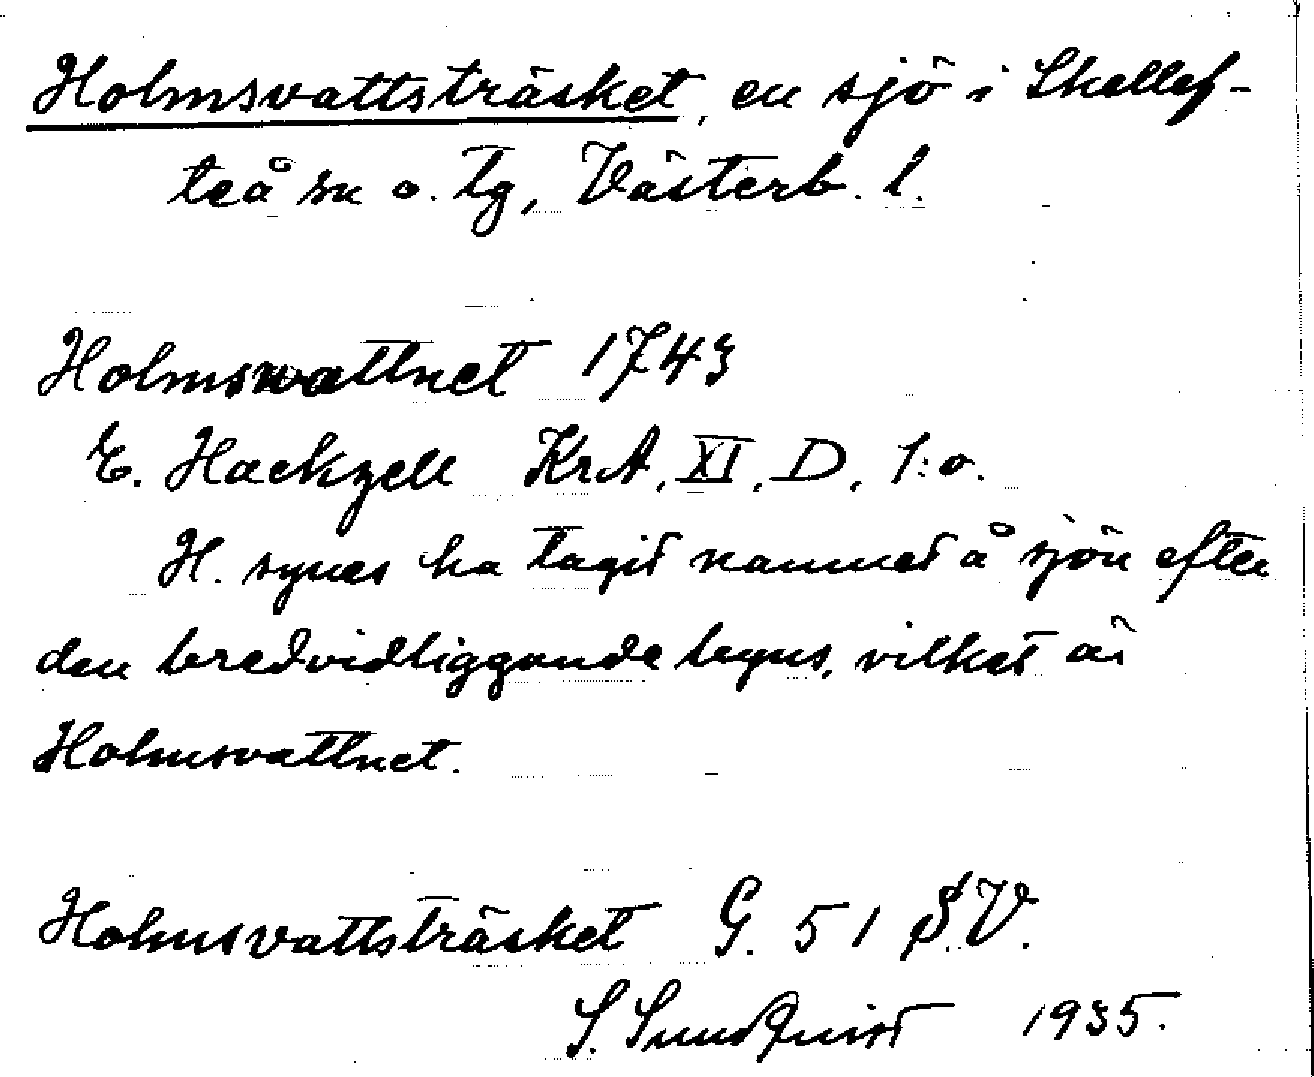 Holmsvattsträsket, en sjö i Skellef-
teå sn o. tg, Västerb. l.
Holmswattnet 1743
E. Hackzell KrA, XI, D, 1:o.
H. synes ha tagit namnet å sjön efter
den bredvidliggande byns, vilket är
Holmsvattnet.
Holmsvattsträsket G. 51 S.V.
S. Sundquist 1935.